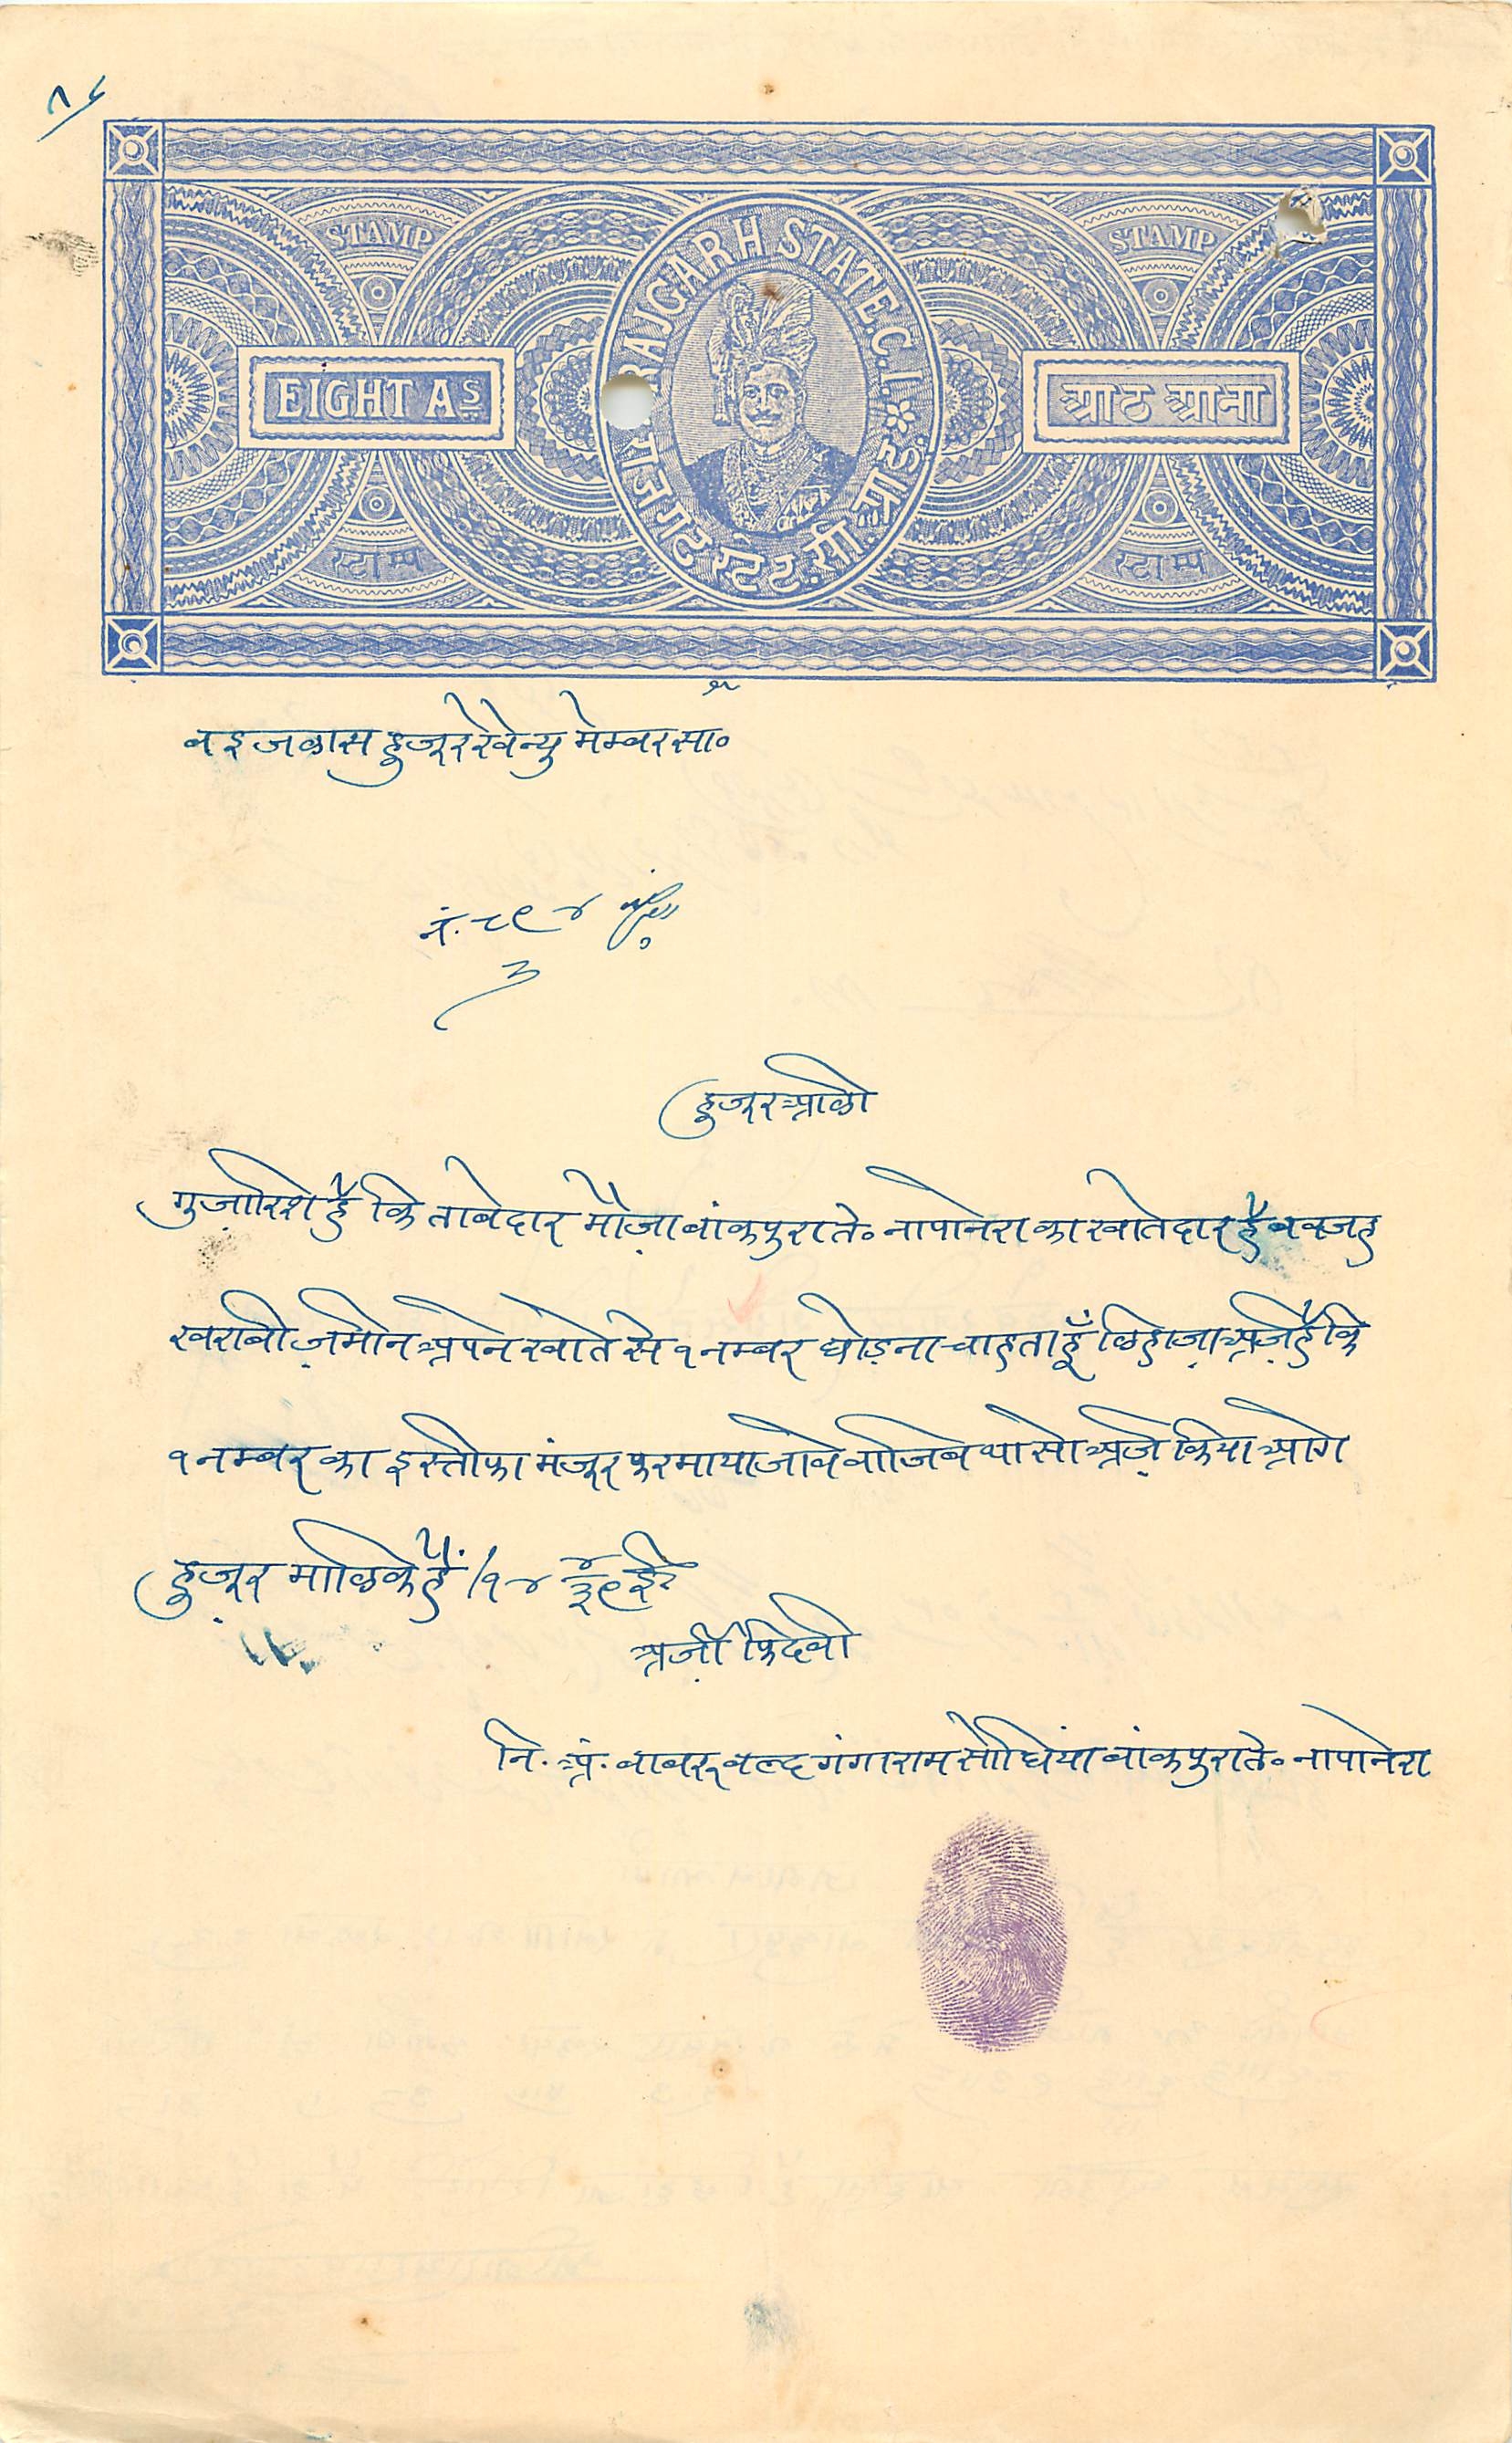 STAMP
STAMP
RAJGARH STATE.C.I.
EIGHT AS
आठ आना
राजगढ स्टेट.सी.आई.
स्टाम्प
स्टाम्प
बइजलास हुजूर रेवेन्यु मेम्बर सा०
नं. ८९४
हुजूर आली
गुज़ारिश है कि ताबेदार मौज़ा बांकपुरा ते० नापानेरा का खातेदार है बवजह
खराबी ज़मीन अपने खाते से १ नम्बर छोड़ना चाहता हूँ लिहाज़ा अर्ज़ है कि
१ नम्बर का इस्तीफा मंजूर फरमाया जावे वाजिब था सो अर्ज़ किया आगे
हुजूर मालिक हैं
अर्ज़ी फिदवी
नि. अं. बाबर वल्द गंगाराम सोंधिया बांकपुरा ते० नापानेरा